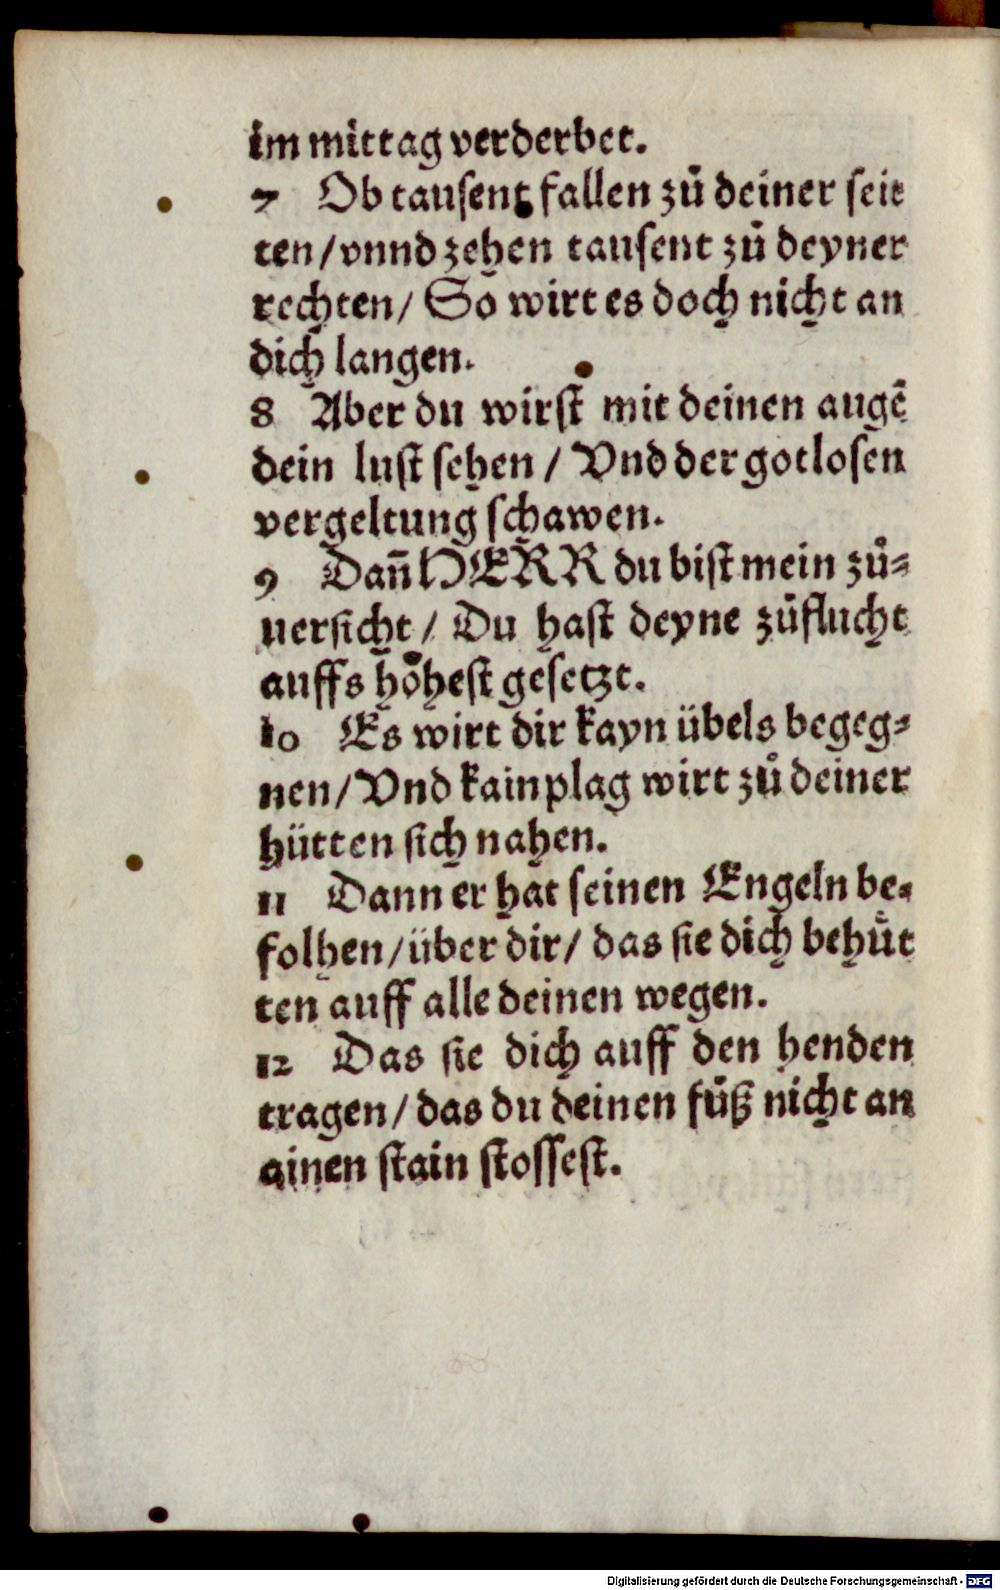 im mittag verderbet.
7 Ob tausent fallen zů deiner seit
ten/ vnnd zehen tausent zů deyner
rechten/ So wirt es doch nicht an
dich langen.
8 Aber du wirst mit deinen augē
dein lust sehen / Vnd der gotlosen
vergeltung schawen.
9 Dañ HERR du bist mein zů-
uersicht / Du hast deyne zůflucht
auffs hoͤhest gesetzt.
10 Es wirt dir kayn übels begeg-
nen/ Vnd kain plag wirt zů deiner
hütten sich nahen.
11 Dann er hat seinen Engeln be-
folhen/ über dir/ das sie dich behuͤt
ten auff alle deinen wegen.
12 Das sie dich auff den henden
tragen/ das du deinen fůß nicht an
ainen stain stossest.
Digitalisierung gefördert durch die Deutsche Forschungsgemeinschaft - DFG